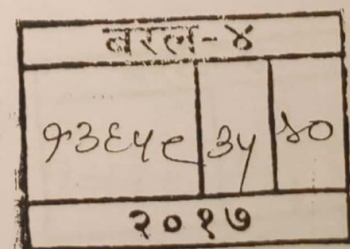 बरल-४
१३६५९ ३५ ४०
२०१७